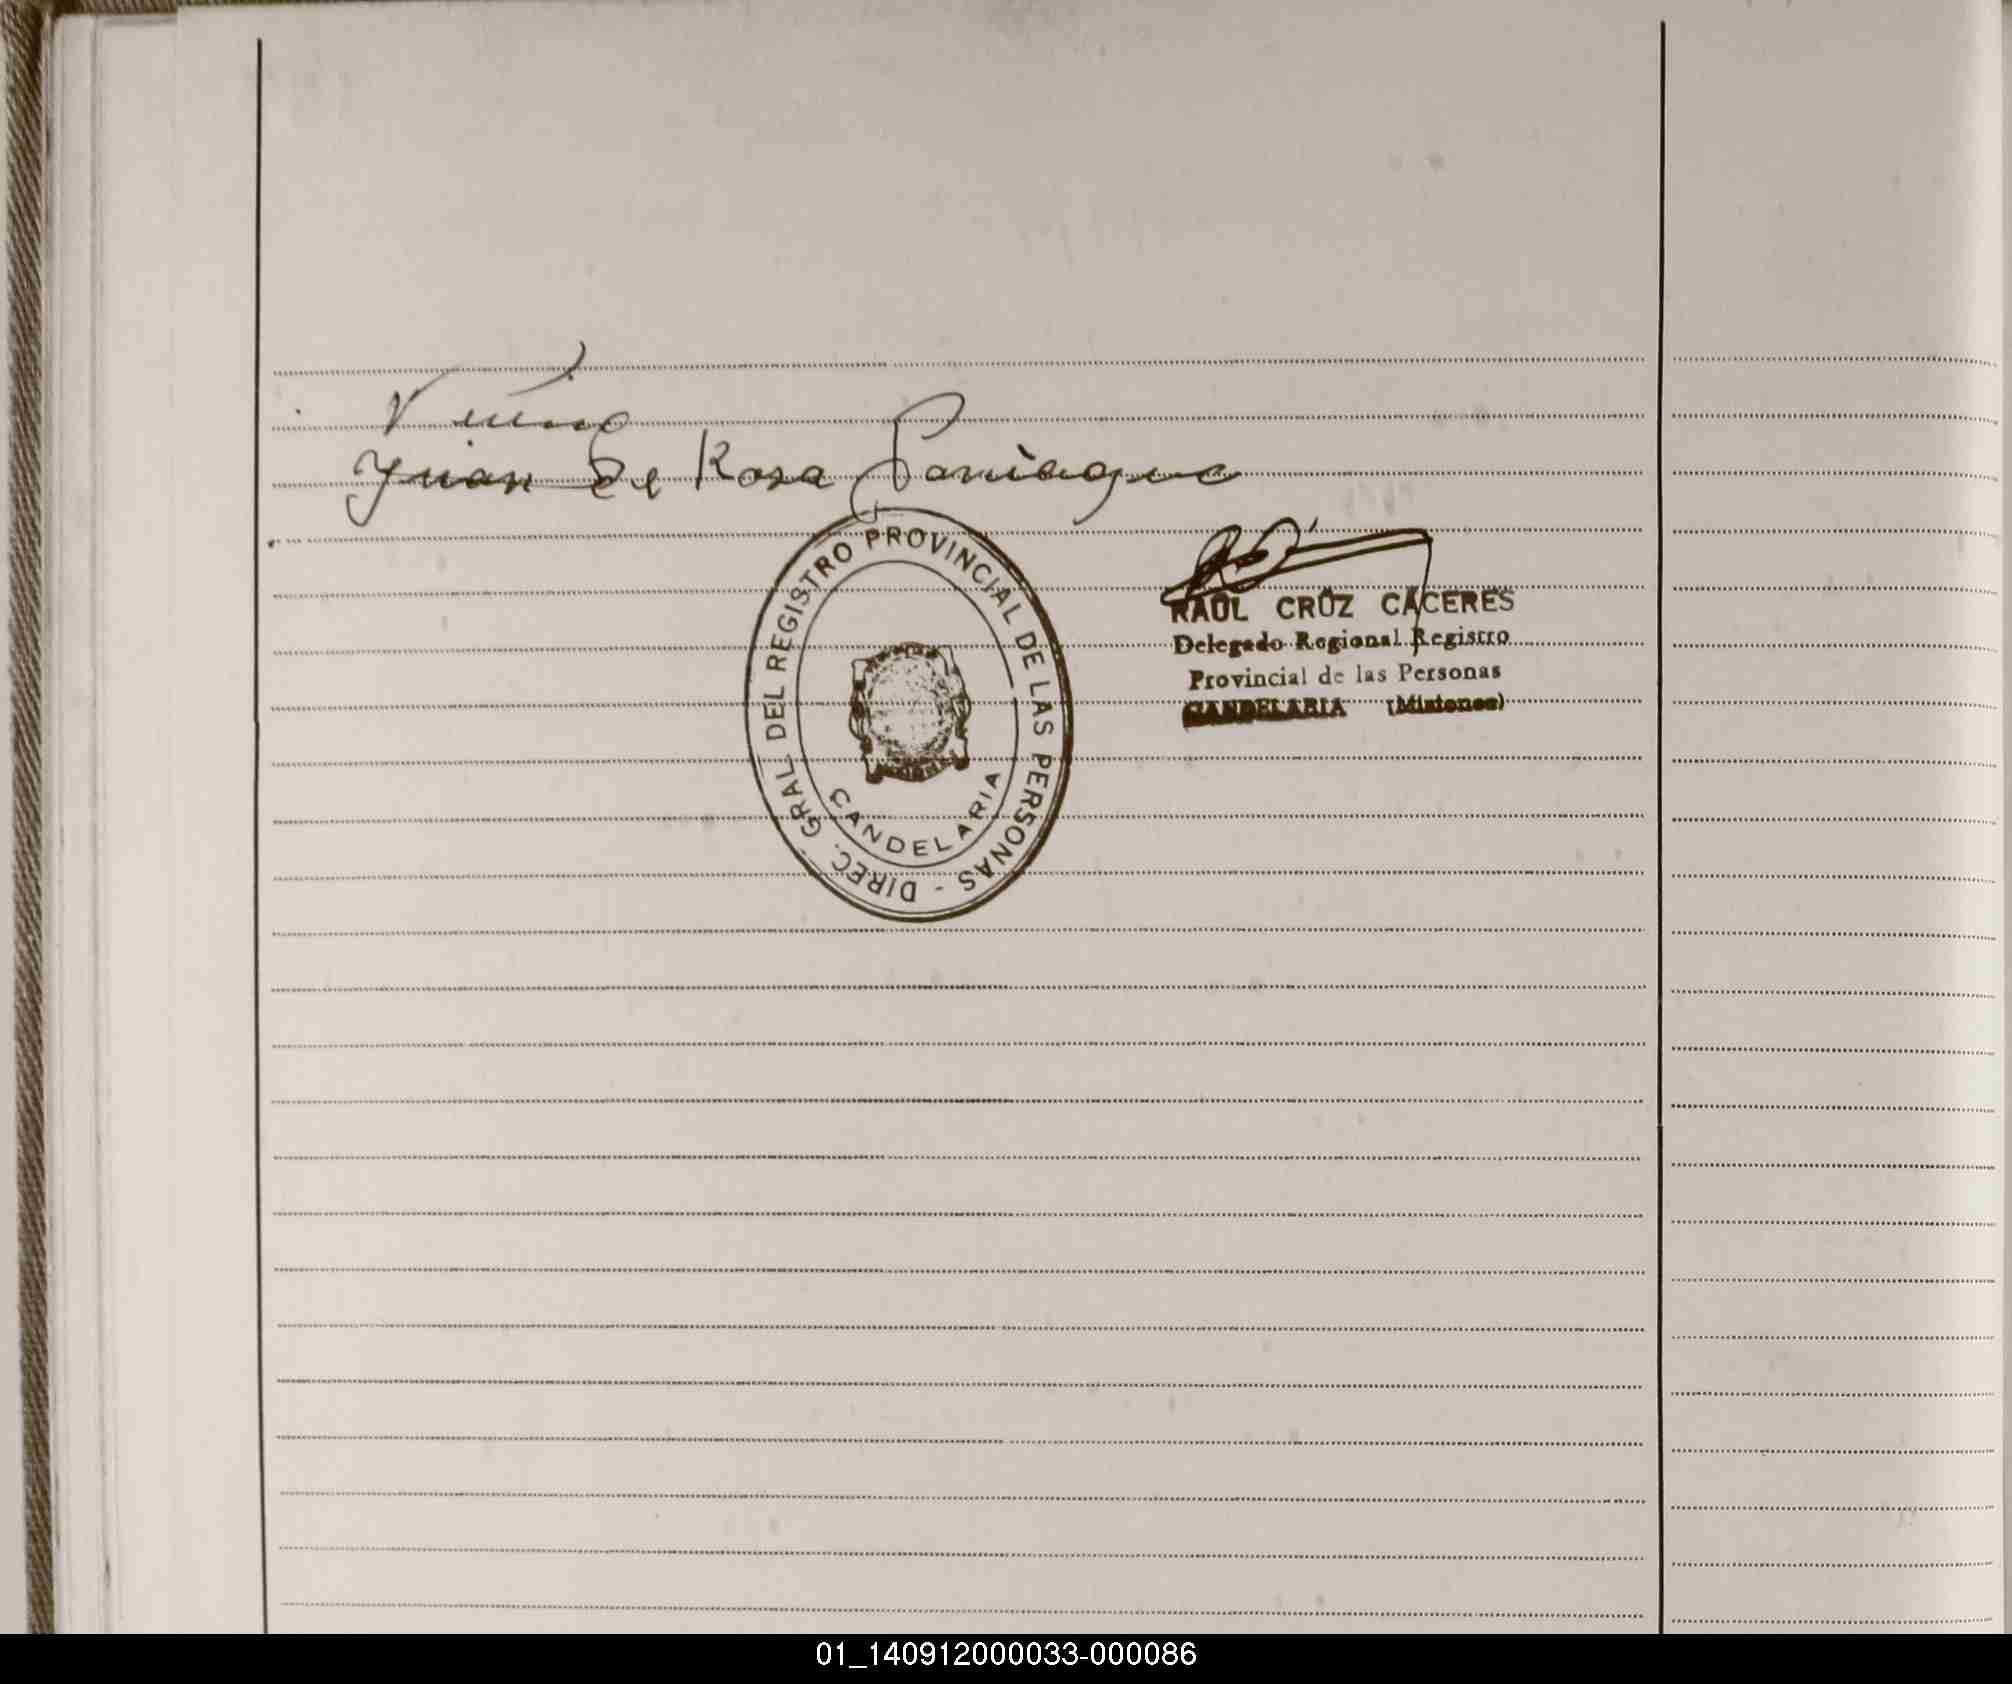 Juan de Rosa Paniagua
DIREC. GRAL. DEL REGISTRO PROVINCIAL DE LAS PERSONAS -
CANDELARIA
RAUL CRUZ CACERES
Delegado Regional Registro
Provincial de las Personas
CANDELARIA (Misiones)
01_140912000033-000086